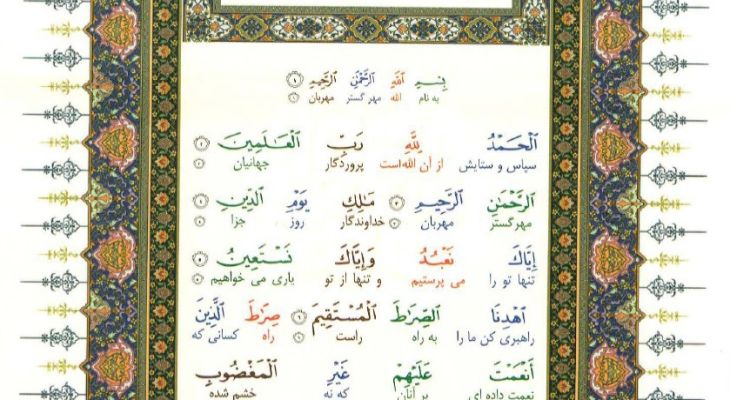 بِسْمِ اللَّهِ الرَّحْمَٰنِ الرَّحِيمِ ۱
به نام الله مهر گستر مهربان ۱
الْحَمْدُ لِلَّهِ رَبِّ الْعَالَمِينَ
سپاس و ستایش از آن الله است پروردگار جهانیان
الرَّحْمَٰنِ الرَّحِيمِ مَالِكِ يَوْمِ الدِّينِ
مهر گستر مهربان خداوندگار روز جزا
إِيَّاكَ نَعْبُدُ وَإِيَّاكَ نَسْتَعِينُ
تنها تو را می پرستیم و تنها از تو یاری می خواهیم
اهْدِنَا الصِّرَاطَ الْمُسْتَقِيمَ ۶ صِرَاطَ الَّذِينَ
راهبری کن ما را به راه راست ۶ راه کسانی که
أَنْعَمْتَ عَلَيْهِمْ غَيْرِ الْمَغْضُوبِ
نعمت داده ای بر آنان که نه خشم شده